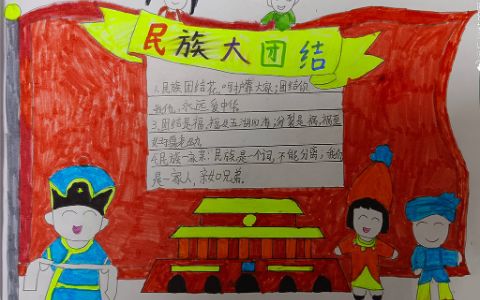 民族大团结
1.民族团结花,呵护靠大家;团结你
我他,永远爱中华
3.团结是福,福如五湖四海;分裂是祸,祸至
4.民族一家亲:民族是一个词,不能分离,我们
是一家人,亲如兄弟.